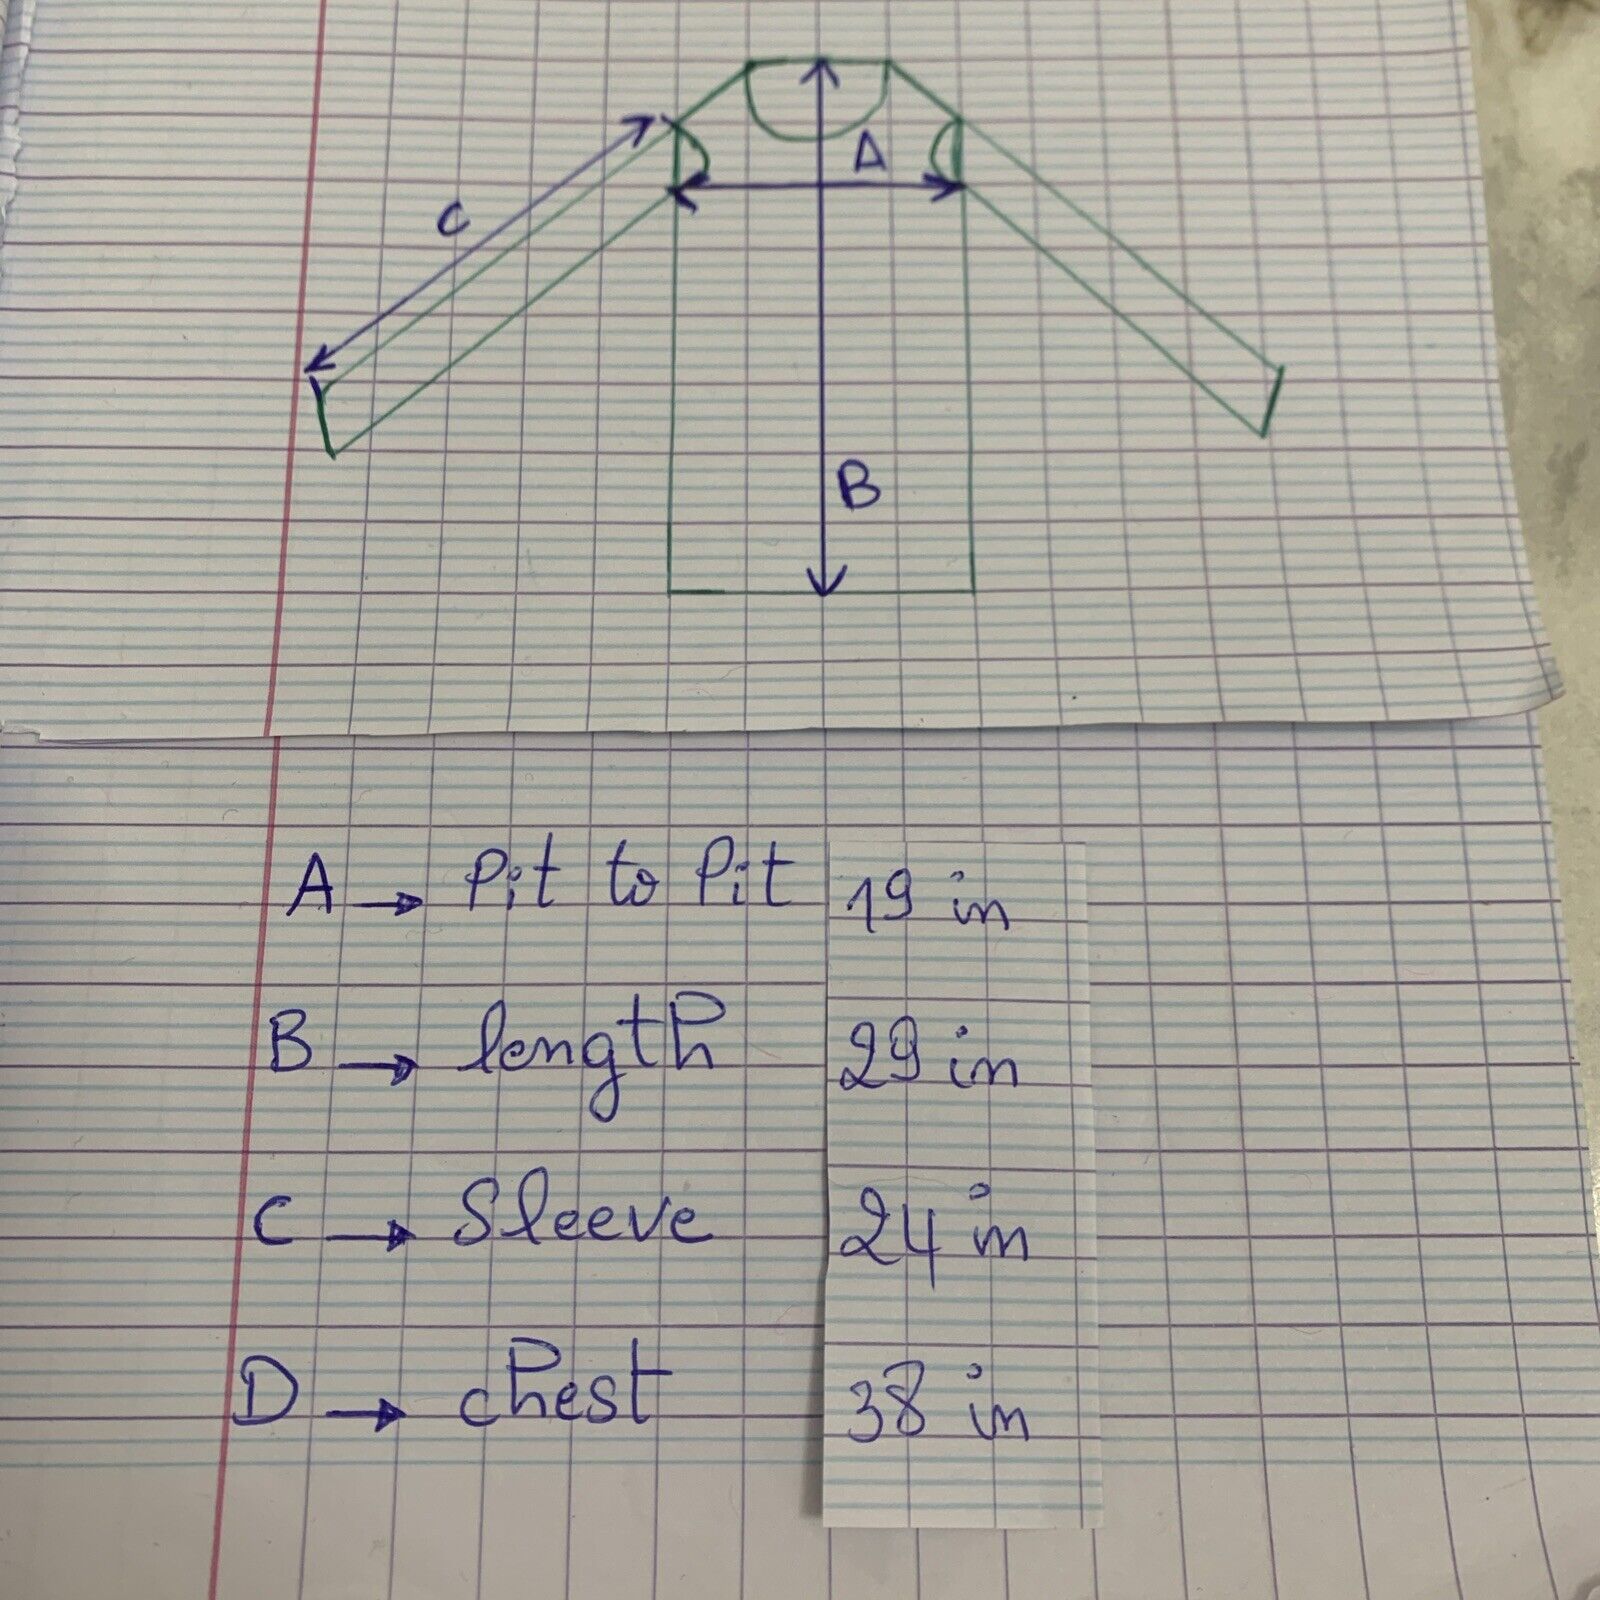 C
A
B
A → Pit to Pit 19 in
B → length 29 in
C → Sleeve 24 in
D → chest 38 in